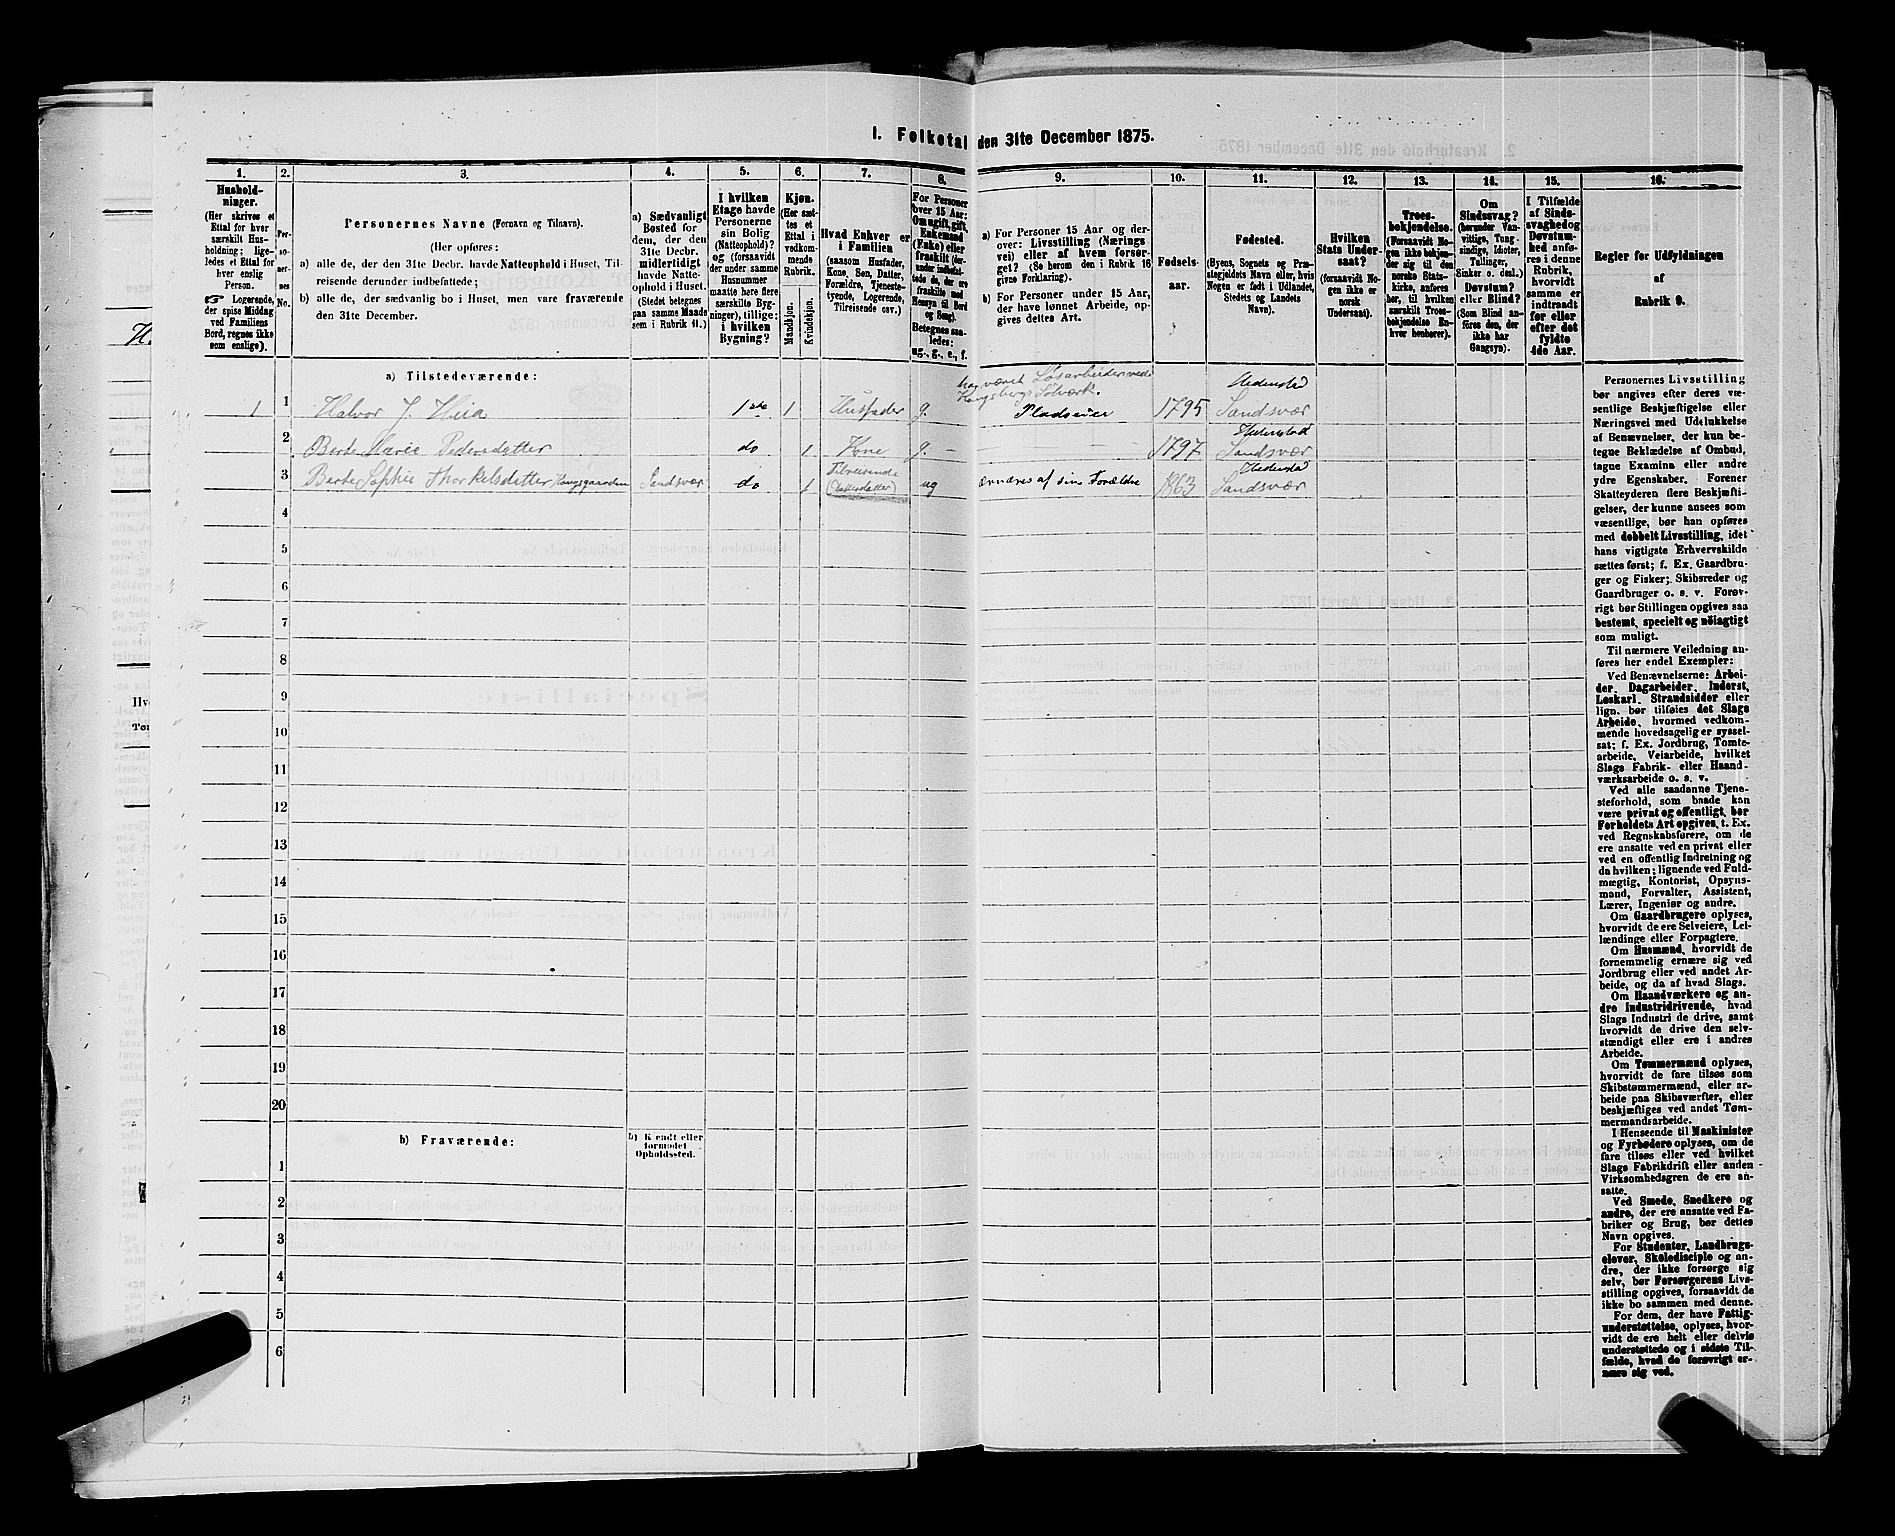 I. Folketal den 31te December 1875.
1.
2.
3.
4.
5.
6.
7.
8.
9.
10.
11.
12.
13.
14.
15.
16.
Hushold-
ninger.
(Her skrives et
Ettal for hver
særskilt Hus-
holdning; lige-
ledes et Ettal for
hver enslig
Person.
☞ Logerende,
der spise Middag
ved Familiens
Bord, regnes ikke
som enslige).
Per-
so-
ner-
nes
No.
Personernes Navne (Fornavn og Tilnavn).
(Her opføres:
a) alle de, der den 31te Decbr. havde Natteophold i Huset, Til-
reisende derunder indbefattede;
b) alle de, der sædvanlig bo i Huset, men vare fraværende
den 31te December.
a) Sædvanligt
Bosted for
dem, der den
31te Decbr.
midlertidigt
havde Natte-
ophold i Huset.
(Stedet betegnes
paa samme Maade
som i Rubrik 11.)
I hvilken
Etage havde
Personerne
sin Bolig
(Natteophold)?
og (forsaavidt
der under samme
Husnummer
maatte høre flere
særskilte Byg-
ninger), tillige:
i hvilken
Bygning?
Kjøn.
(Her sæt-
tes et
Ettal i
vedkom-
mende
Rubrik.
Mandkjøn.
Kvindekjøn.
Hvad Enhver er
i Familien
(saasom Husfader,
Kone, Søn, Datter,
Forældre, Tjeneste-
tyende, Logerende,
Tilreisende osv.)
For Personer
over 15 Aar:
Om ugift, gift,
Enkemand
(Enke) eller
fraskilt (der-
under indbefat-
tede de, der ere
fraskilte med
Hensyn til Bord
og Seng).
Betegnes saa-
ledes:
ug., g., e., f.
a) For Personer 15 Aar og der-
over: Livsstilling (Nærings
vei) eller af hvem forsør-
get? (Se herom den i Rubrik 16
givne Forklaring).
b) For Personer under 15 Aar,
der have lønnet Arbeide, op-
gives dettes Art.
Fødsels-
aar.
Fødested.
(Byens, Sognets og Præ-
stegjeldets Navn eller, hvis
Nogen er født i Udlandet,
Stedets og Landets
Navn).
Hvilken
Stats Under-
saat?
(forsaavidt No-
gen ikke er
norsk
Undersaat).
Troes-
bekjendelse.
(Forsaavidt No-
gen ikke bekjen-
der sig til den
norske Stats-
kirke, anføres
her, til hvilken
særskilt Troes-
bekjendelse En-
hver henhører).
Om
Sindssvag?
(herunder Van-
vittige, Tung-
sindige, Idioter,
Tullinger,
Sinker o. desl.)
Døvstum?
eller Blind?
(Som Blind an-
føres den, der
ikke har
Gangsyn).
I Tilfælde
af Sinds-
svaghed og
Døvstum-
hed anfø-
res i denne
Rubrik,
hvorvidt
samme er
indtraadt
før eller
efter det
fyldte
4de Aar.
Regler for Udfyldningen
af
Rubrik 9.
a) Tilstedeværende:
har været Løsarbeider ved
Kongsbergs Sølværk.
Hedenstad
1 1 Halvor J. Heia 1ste 1 Husfader g. Pladseier 1795 Sandsvær
Hedenstad
2 Berte Marie Pedersdatter do 1 Kone g. — 1797 Sandsvær
Tilreisende Hedenstad
3 Berte Sophie Thorkelsdatter Kongsgaarden Sandsvær do 1 (Datterdatter) ug ernæres af sine Forældre 1863 Sandsvær
4
5
6
7
8
9
10
11
12
13
14
15
16
17
18
19
20
b) Fraværende:
b) Kjendt eller
formodet
Opholdssted.
1
2
3
4
5
6
Personernes Livsstilling
bør angives efter deres væ-
sentlige Beskjæftigelse eller
Næringsvei med Udelukkelse
af Benævnelser, der kun be-
tegne Beklædelse af Ombud,
tagne Examina eller andre
ydre Egenskaber. Forener
Skatteyderen flere Beskjæfti-
gelser, der kunne ansees som
væsentlige, bør han opføres
med dobbelt Livsstilling, idet
hans vigtigste Erhvervskilde
sættes først; f. Ex. Gaardbru-
ger og Fisker; Skibsreder og
Gaardbruger o. s. v. Forøv-
rigt bør Stillingen opgives saa
bestemt, specielt og nöiagtigt
som muligt.
Til nærmere Veiledning an-
føres her endel Exempler:
Ved Benævnelserne: Arbei-
der, Dagarbeider, Inderst,
Løskarl, Strandsidder eller
lign. bør tilføies det Slags
Arbeide, hvormed vedkom-
mende hovedsagelig er syssel-
sat; f. Ex. Jordbrug, Tomte-
arbeide, Veiarbeide, hvilket
Slags Fabrik- eller Haand-
værksarbeide o. s. v.
Ved alle saadanne Tjene-
steforhold, som baade kan
være privat og offentligt, bør
Forholdets Art opgives, t. Ex.
ved Regnskabsførere, om de
ere ansatte ved en privat eller
ved en offentlig Indretning og
da hvilken; lignende ved Fuld-
mægtig, Kontorist, Opsyns-
mand, Forvalter, Assistent,
Lærer, Ingeniør og andre.
Om Gaardbrugere oplyses,
hvorvidt de ere Selveiere, Lei-
lændinge eller Forpagtere.
Om Husmænd, hvorvidt de
fornemmelig ernære sig ved
Jordbrug eller ved andet Ar-
beide, og da af hvad Slags.
Om Haandværkere og an-
dre Industridrivende, hvad
Slags Industri de drive, samt
hvorvidt de drive den selv-
stændigt eller ere i andres
Arbeide.
Om Tømmermænd oplyses,
hvorvidt de fare tilsøs som
Skibstømmermænd, eller ar-
beide paa Skibsværfter, eller
beskjæftiges ved andet Tøm-
mermandsarbeide.
I Henseende til Maskinister
og Fyrbødere oplyses, om de
fare tilsøs eller ved hvilket
Slags Fabrikdrift eller anden
Virksomhedsgren de ere an-
satte.
Ved Smede, Snedkere og
andre, der ere ansatte ved Fa-
briker og Brug, bør dettes
Navn opgives.
For Studenter, Landbrugs-
elever, Skoledisciple og an-
dre, der ikke forsørge sig
selv, bør Forsørgerens Livs-
stilling opgives, forsaavidt de
ikke bo sammen med denne.
For dem, der have Fattig-
understøttelse, oplyses, hvor-
vidt de ere helt eller delvis
understøttede og i sidste Til-
fælde, hvad de forøvrigt er-
nære sig ved.